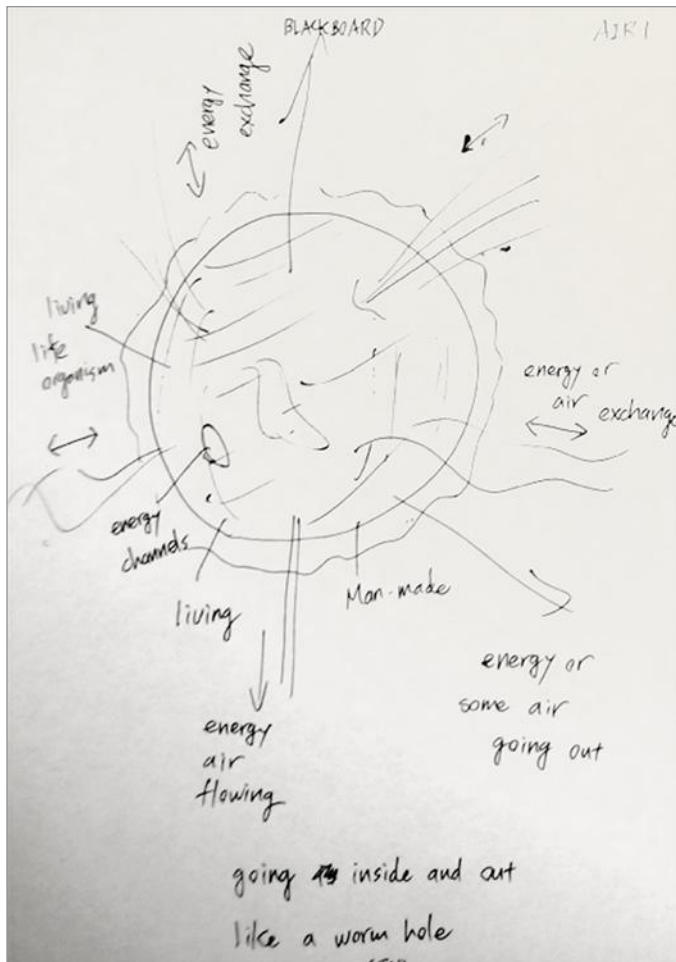 BLACKBOARD
AIRI
energy
exchange
living
life
organism
energy or
air exchange
energy
channels
living
Man-made
energy
air
flowing
energy or
some air
going out
going inside and out
like a worm hole